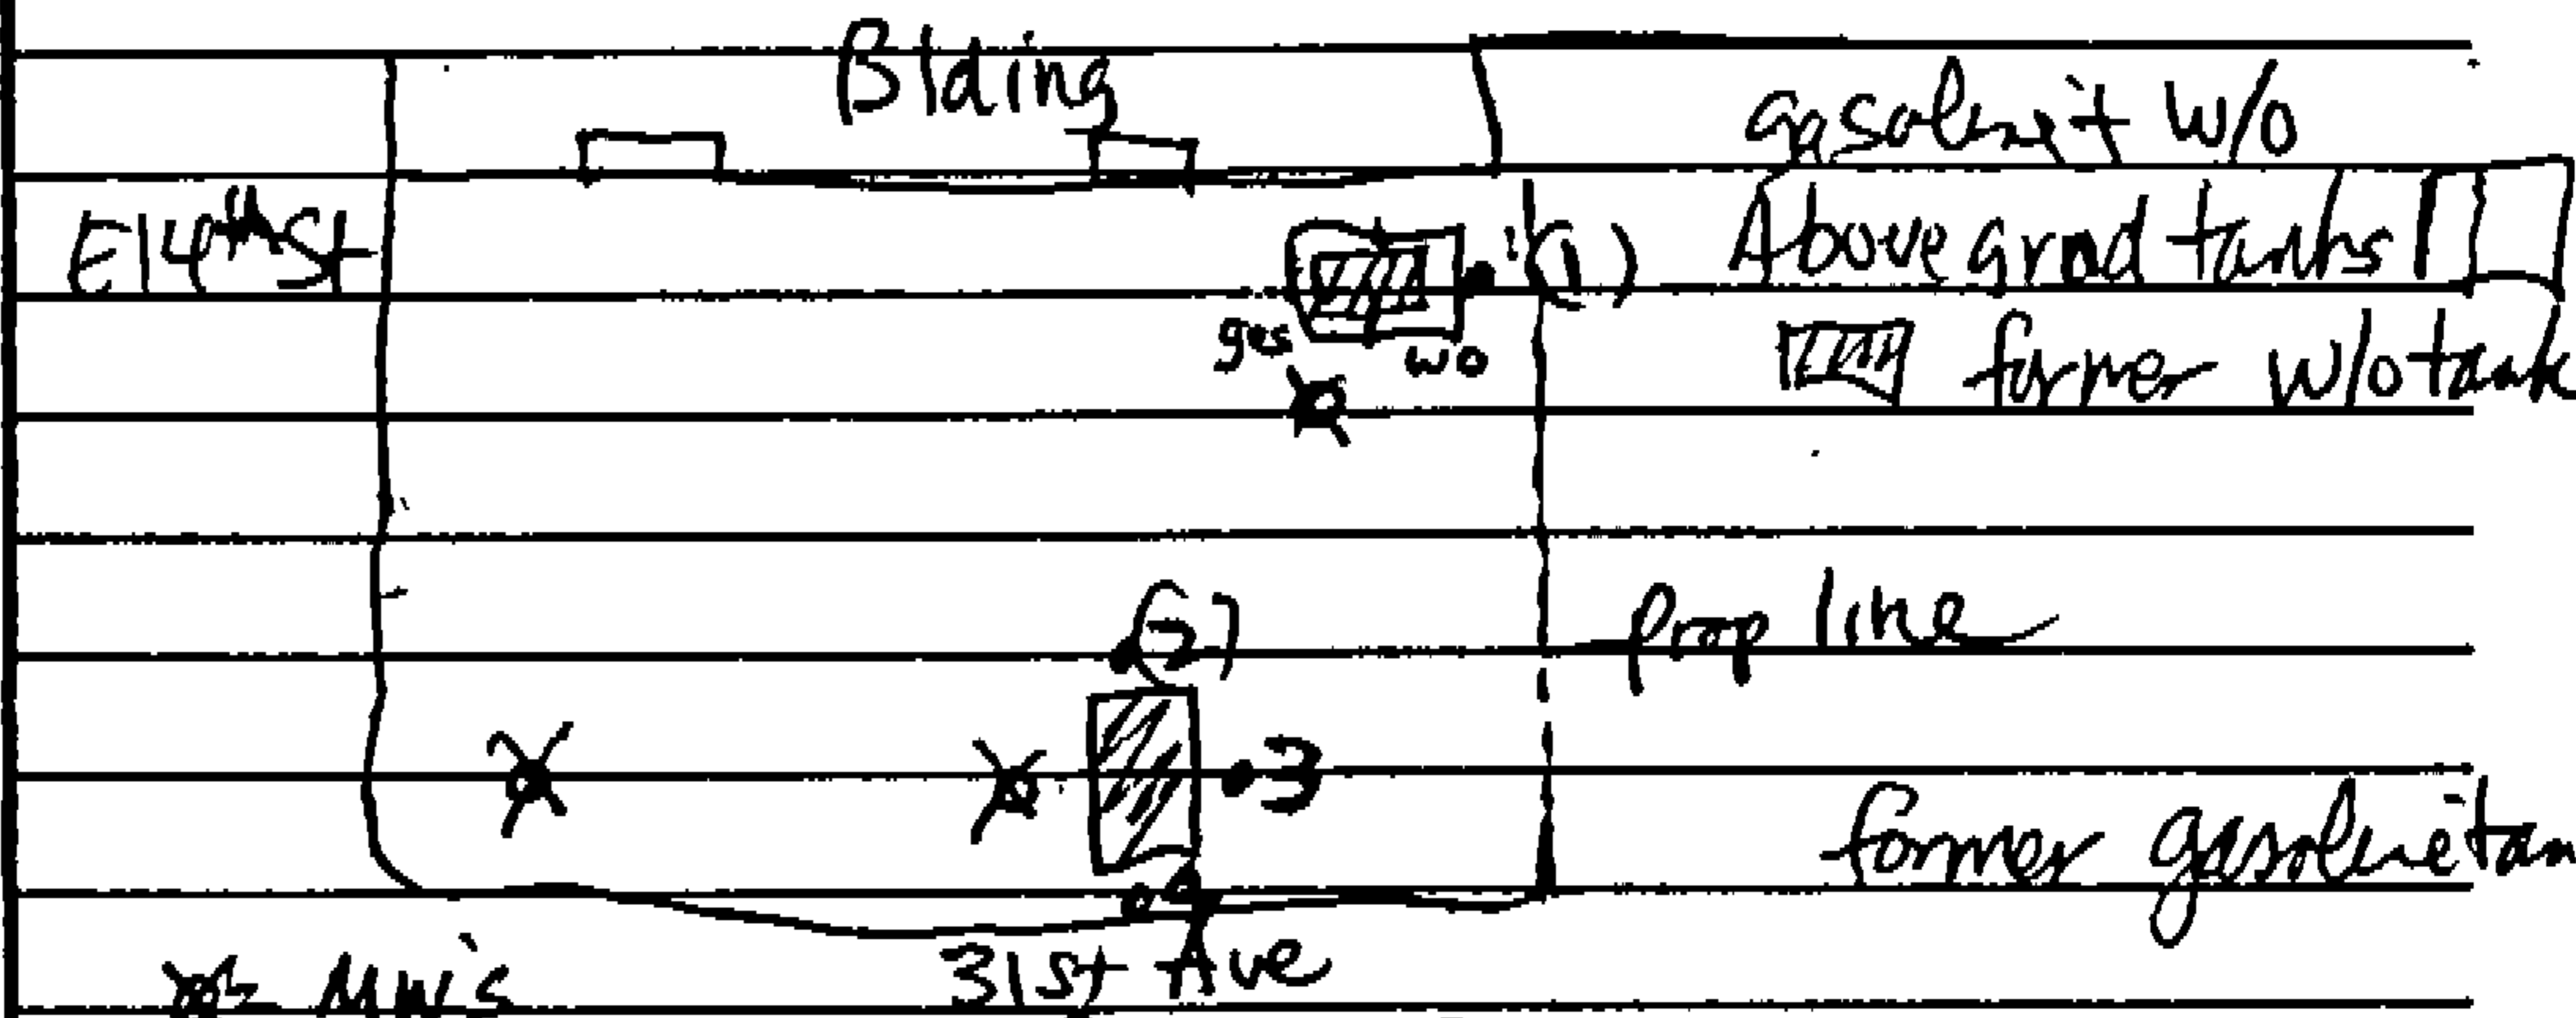 Blding
gasoline + w/o
E14th St
(1)
Above grnd tanks
gas
wo
former w/o tank
(2)
prop line
3
4
former gasoline tan
31st Ave
= MW's